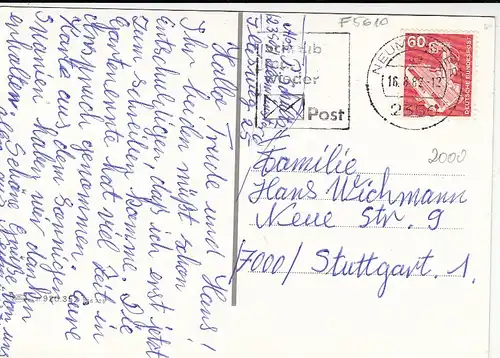 Hallo Trude und Hans!
Ihr beiden müßt schon
Entschuldigen, daß ich erst jetzt
zum schreiben komme. Die
Gartenernte hat viel Zeit in
Anspruch genommen. Eure
Karte aus dem Sonnigen
haben wir dankend
erhalten. Schöne Grüße
F5610
Schreib
mal
wieder
Post
NEUMÜNSTER
2350
60
DEUTSCHE BUNDESPOST
2000
Familie
Hans Wichmann
Neue Str. 9
7000/ Stuttgart. 1.